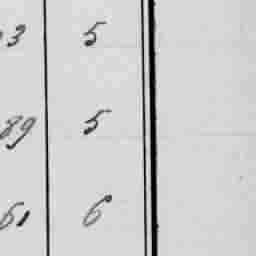 3 5
89 5
61 6